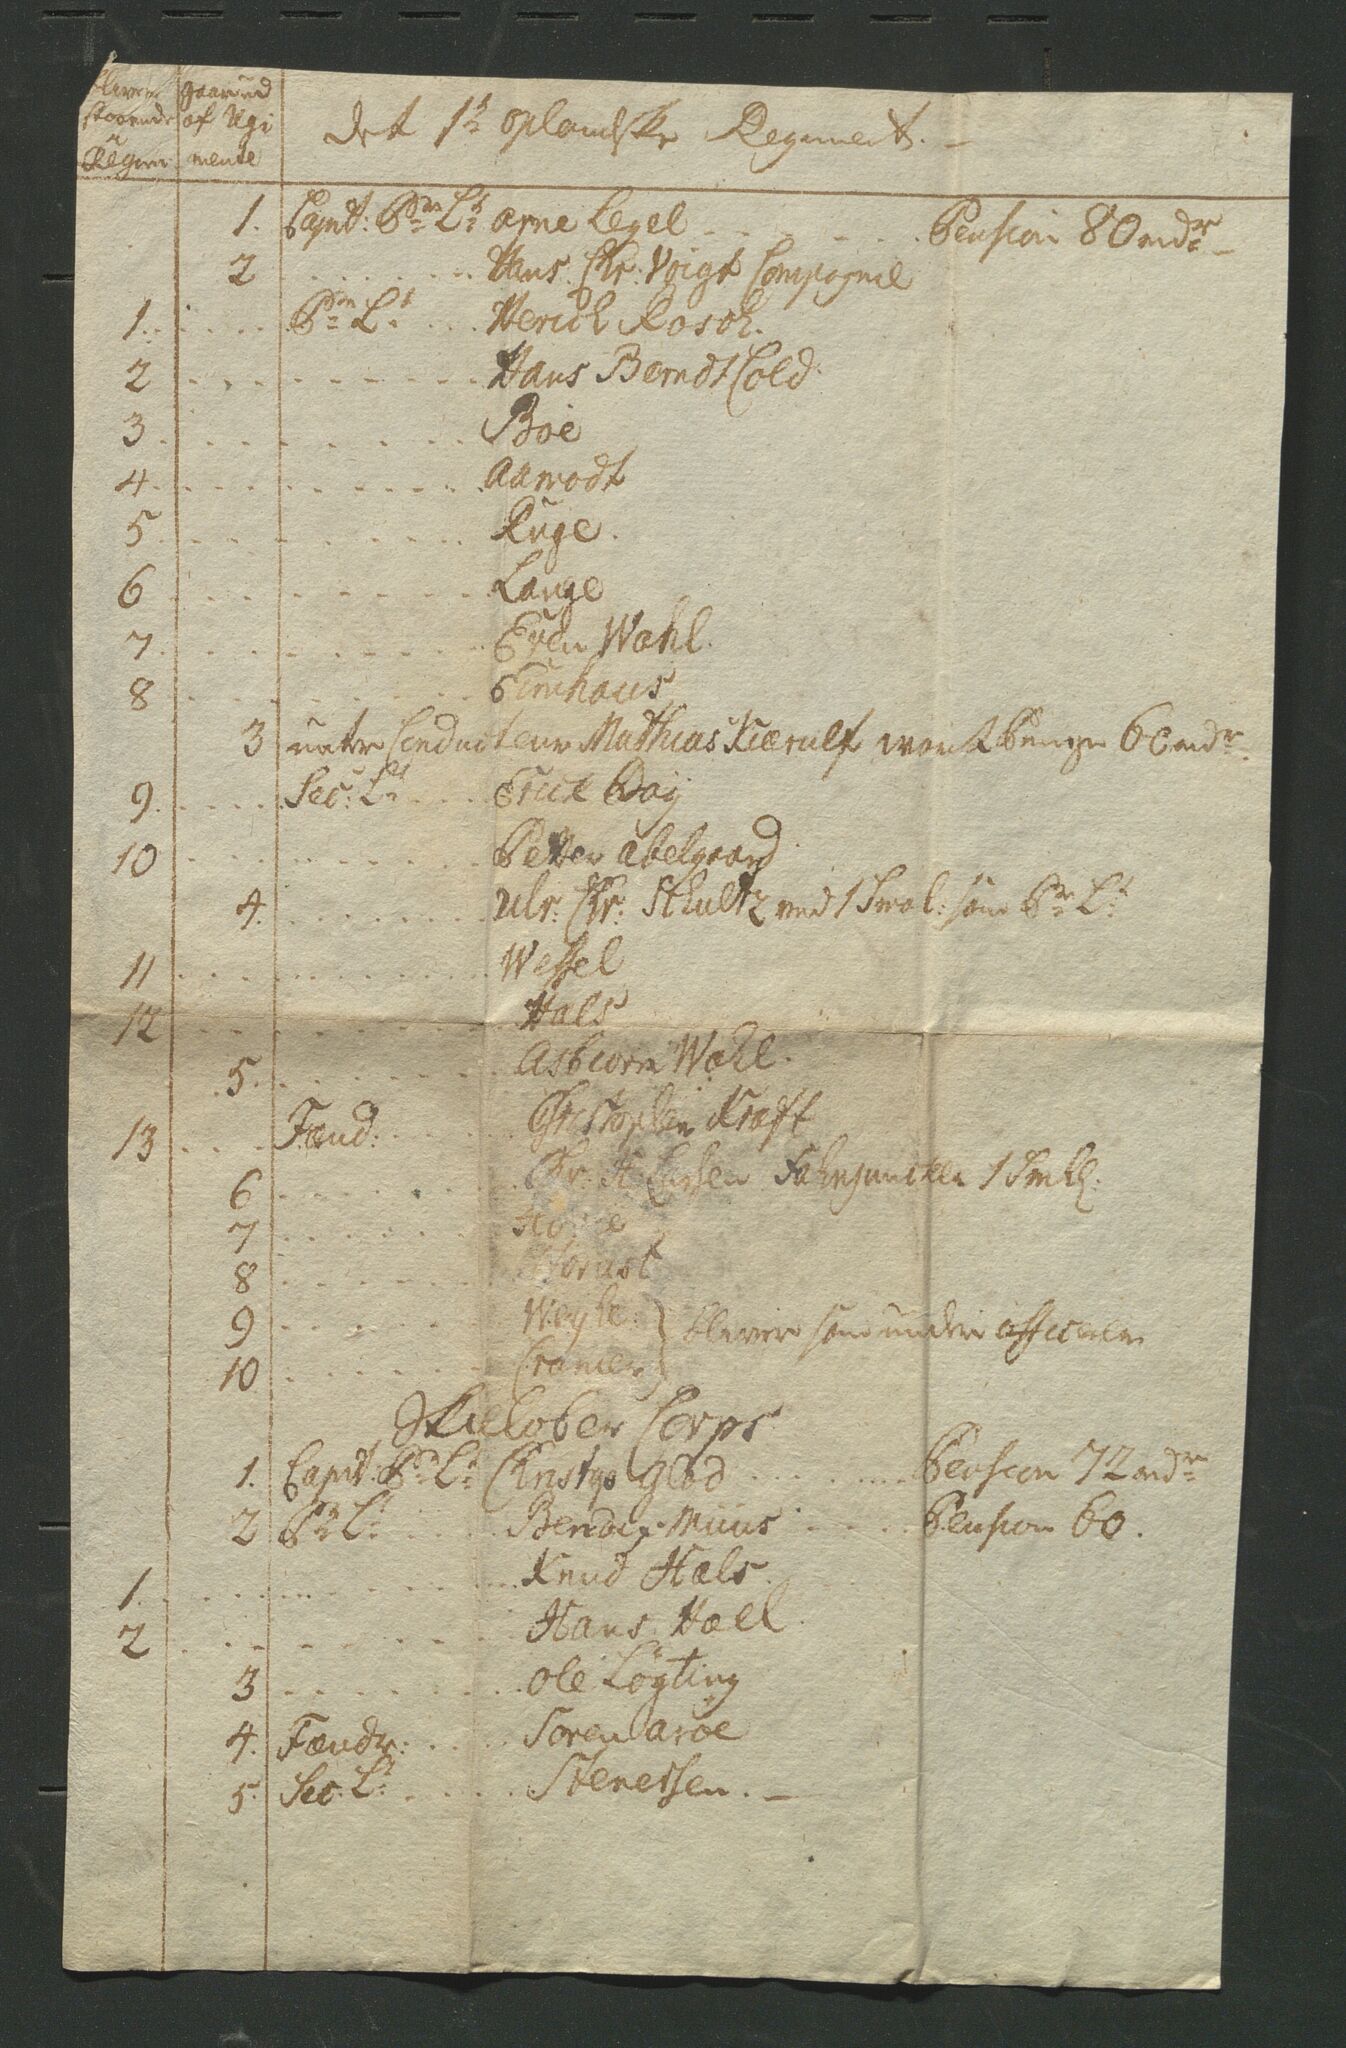 bliver staaende v Regim:
gaar ud af Regimente
Det 1te Oplandske Regiment. –
1. Capit: Pr Lt Arne Legel . . . . . Pension 80 rdr –
2 . . . . . Hans Chr: Voigt Compagnie
1. . . . . Pr Lt . . . Henrich Rosch.
2 . . . . . Hans Berndt Cold.
3. . . . . Boie
4. . . . . Aamodt
5. . . . . Ruge.
6 . . . . . Lange
7. . . . . Wahl.
8 . . . . .
3 Conducteur Mathias Kierulf 60 rdr
9. . . . . Sec: Lt . . . Erick Bay
10 . . . . . Petter Abelgaard
4. . . . . Ulr: Chr: Schultz med som Pr Lt
11 . . . . . Wessel
12 . . . . . Hals
5. . . . . Asbiorn Wahl.
13 . . . Fænd: . . . . Christopher Kraft
6 . . . . . Chr: H
7 . . . . .
8 . . . . .
9 . . . . . Weyhe } blever som under officerer
10 . . . . . Cramer
Skielober Corps
1. Capit: Pr Lt Christop Glad . . . . . Pension 72 rdr
2 Pr Lt . . . . Bendix Muus . . . . Pension 60.
1. . . . . Knud Hals.
2 . . . . . Hans Hael.
3 . . . . . Ole Løgting
4. Fændr: . . . . Soren Aroe
5. Sec: Lt . . . . . Stenersen. –